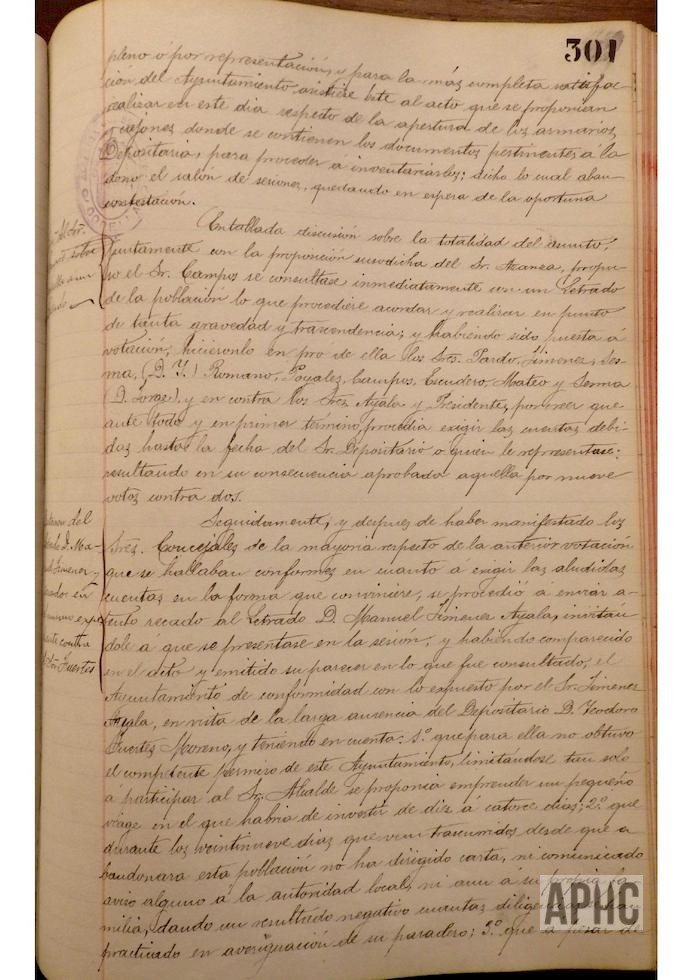 301
pleno ó por representación, y para la más completa satisfac-
cion del Ayuntamiento asistiese este al acto que se proponian
realizar en este dia respecto de la apertura de los armarios
y cajones donde se contienen los documentos pertinentes á la
Depositaria, para proceder á inventariarlos; dicho lo cual aban-
donó el salon de sesiones, quedando en espera de la oportuna
contestación.
Entablada discusión sobre la totalidad del asunto,
juntamente con la proposición susodicha del Sr. Aranza, propu-
so el Sr. Campos se consultase inmediatamente con un Letrado
de la población lo que procediese acordar y realizar en punto
de tanta gravedad y trascendencia; y habiendo sido puesta á
votación, hicieronlo en pro de ella los Sres. Pardo, Jimenez, Les-
ma, (D. Y.) Romano, Poyales, Campos, Escudero, Mateo y Lesma
(D. Jorge), y en contra los Sres. Ayala y Presidente, por creer que
ante todo y en primer término, procedia exigir las cuentas debi-
das hasta la fecha del Sr. Depositario o quien le representase:
resultando en su consecuencia aprobada aquella por nueve
votos contra dos.
Seguidamente, y despues de haber manifestado los
Sres. Concejales de la mayoria respeto de la anterior votación
que se hallaban conformes en cuanto á exigir las aludidas
cuentas en la forma que conviniere, se procedió á enviar a-
tento recado al Letrado D. Manuel Jimenez Ayala, invitán-
dole á que se presentase en la sesion; y habiendo comparecido
en el acto y emitido su parecer en lo que fue consultado, el
Ayuntamiento de conformidad con lo expuesto por el Sr. Jimenez
Ayala, en vista de la larga ausencia del Depositario D. Teodoro
Fuertes Moreno, y teniendo en cuenta: 1.º que para ella no obtuvo
el competente permiso de este Ayuntamiento, limitándose tan solo
á participar al Sr. Alcalde se proponia emprender un pequeño
viage en el que habria de invertir de diez á catorce dias; 2.º que
durante los veintinueve dias que van trascurridos desde que a-
bandonara esta población no ha dirigido carta, ni comunicado
aviso alguno á la autoridad local, ni aun á su propia fa-
milia, dando un resultado negativo cuantas diligencias se han
practicado en averiguación de su paradero; 3.º que á pesar de
sobre
tamen del
D. Ma-
Jimenez
en
expe-
contra
Fuertes
APHC